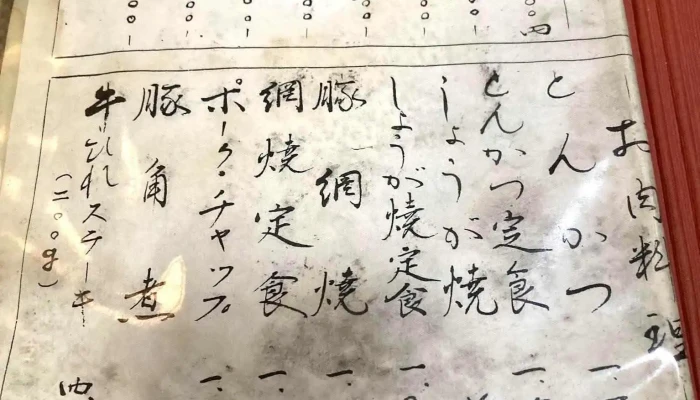 お肉料理
とんかつ
とんかつ定食
しょうが焼
しょうが焼定食
豚網焼
網焼定食
ポーク・チャップ
豚角煮
牛ひれステーキ
(二〇〇g)